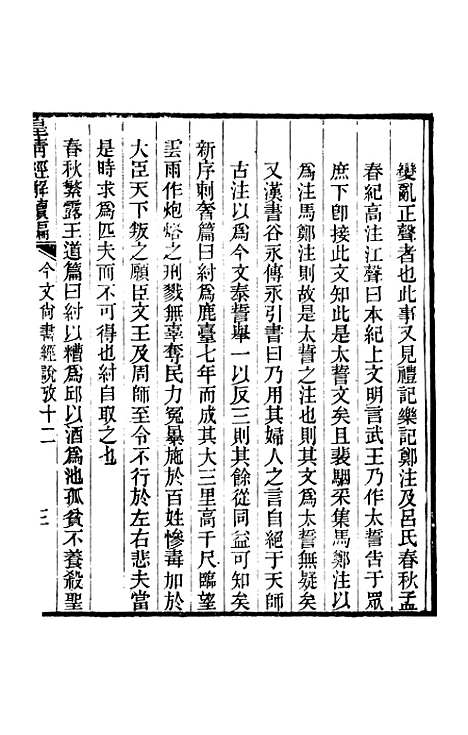 變亂正聲者也此事又見禮記樂記鄭注及呂氏春秋孟
春紀高注江聲曰本紀上文明言武王乃作太誓告于眾
庶下卽接此文知此是太誓文矣且裴駰采集馬鄭注以
爲注馬鄭注則故是太誓之注也則其文爲太誓無疑矣
又漢書谷永傳永引書曰乃用其婦人之言自絕于天師
古注以爲今文泰誓舉一以反三則其餘從同益可知矣
新序刺奢篇曰紂爲鹿臺七年而成其大三里高千尺臨望
雲雨作炮烙之刑戮無辜奪民力冤暴施於百姓慘毒加於
大臣天下叛之願臣文王及周師至令不行於左右悲夫當
是時求爲匹夫而不可得也紂自取之也
春秋繁露王道篇曰紂以糟爲邱以酒爲池孤貧不養殺聖
皇清經解續編
今文尙書經說攷十二
三